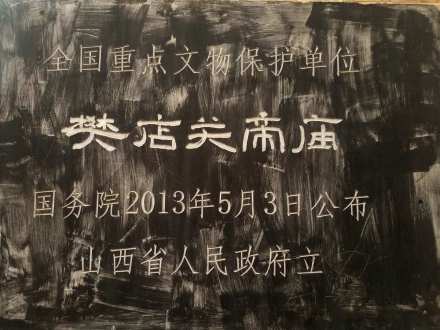 全国重点文物保护单位
樊店关帝庙
国务院2013年5月3日公布
山西省人民政府立